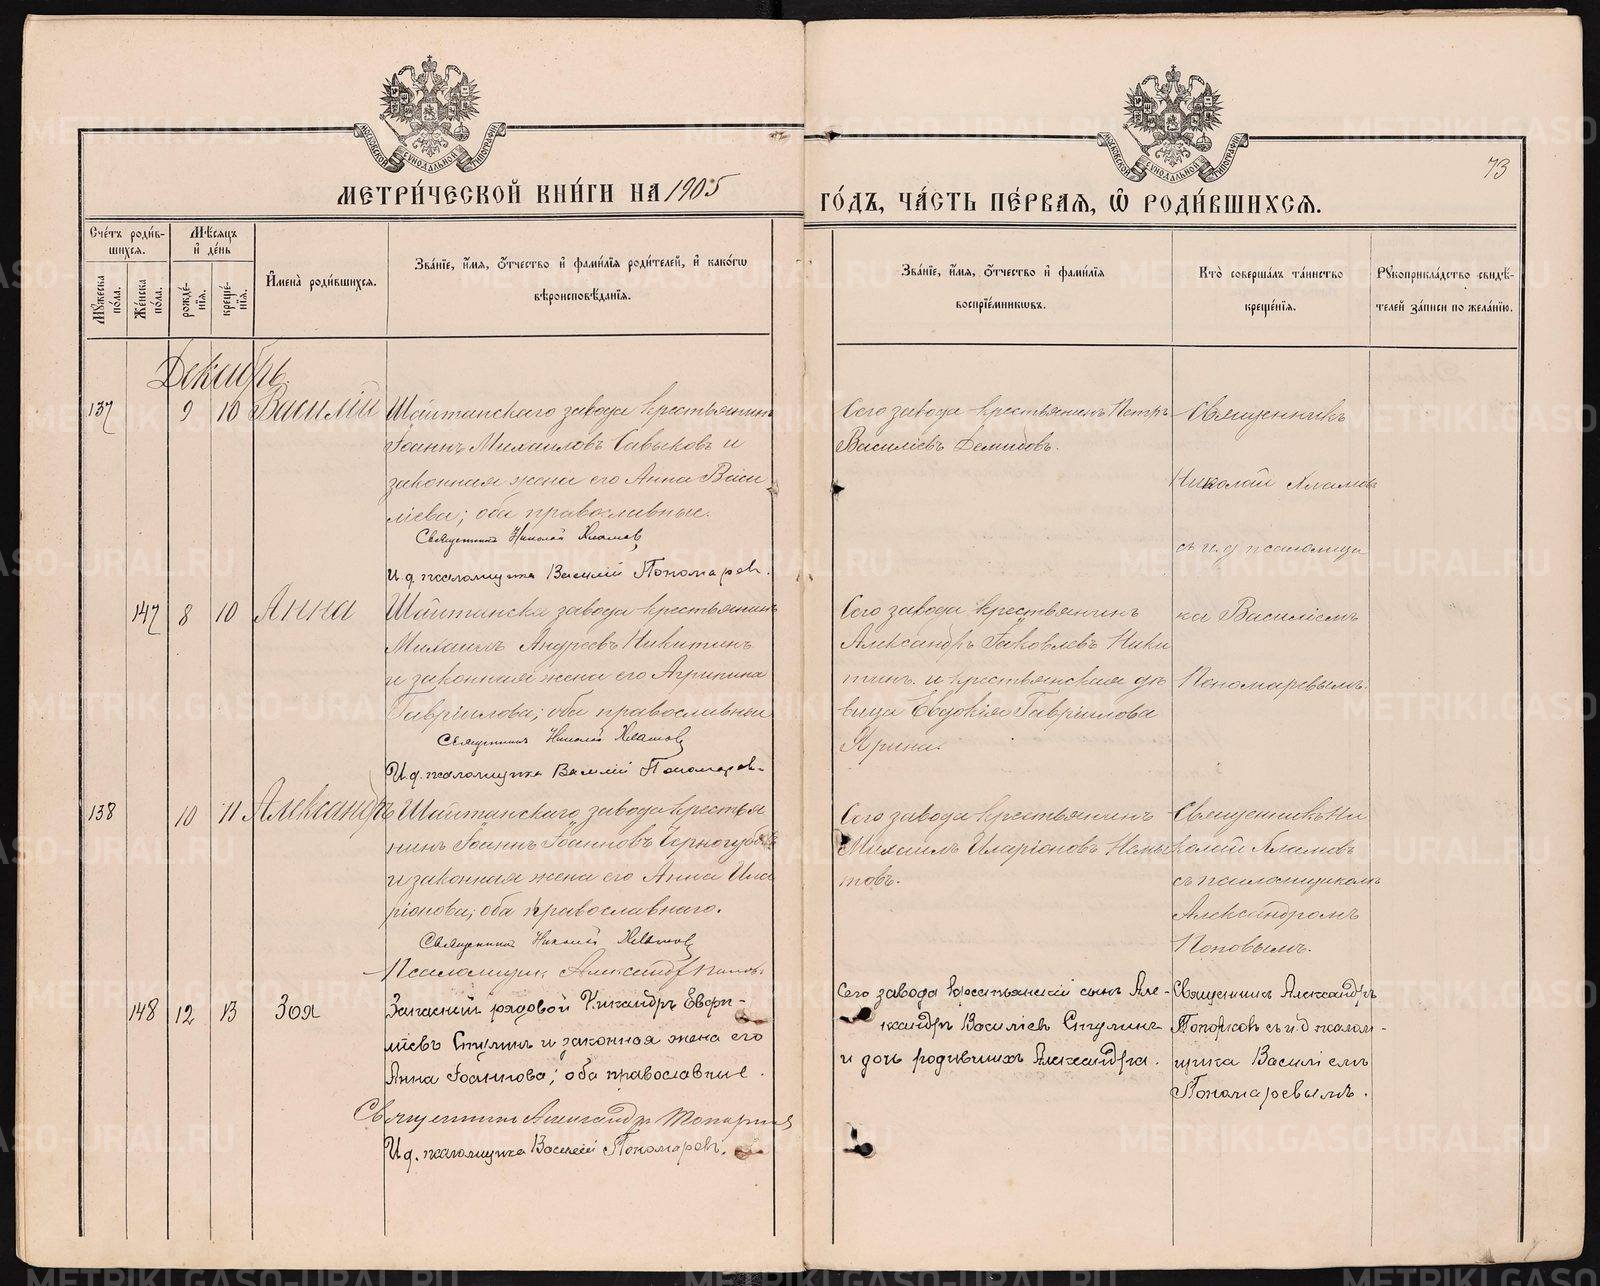 МОСКОВСКОЙ СѴНОДАЛЬНОЙ ТИПОГРАФІИ
МОСКОВСКОЙ СѴНОДАЛЬНОЙ ТИПОГРАФІИ
73
МЕТРИ́ЧЕСКОЙ КНИ́ГИ НА 1905
ГО́ДЪ, ЧА́СТЬ ПЕ́РВАЯ, Ѡ РОДИ́ВШИХСЯ.
Сче́тъ роди́вшихся.
Мꙋжеска по́ла.
Же́нска по́ла.
Мѣ́сяцъ и҆ де́нь
рожде́нїя.
креще́нїя.
И҆мена̀ роди́вшихся.
Зва́нїе, и҆́мя, о҆́тчество и҆ фами́лїя роди́телей, и҆ како́гѡ
вѣроисповѣ́данїя.
Зва́нїе, и҆́мя, о҆́тчество и҆ фами́лїя
воспрїе́мникѡвъ.
Кто̀ соверша́лъ та́инство
креще́нїя.
Рꙋкоприкла́дство свидѣ́-
телей за́писи по жела́нїю.
Декабрь.
137 9 10 Василій
Шайтанскаго завода крестьянинъ
Іоаннъ Михаиловъ Савыковъ и
законная жена его Анна Васи
ліева; оба православные.
Священникъ Николай Хламовъ
И.д. псаломщика Василій Пономаревъ.
Сего завода крестьянинъ Петръ
Василіевъ Демидовъ.
Священникъ
Николай Хламовъ
съ и.д. псаломщи
ка Василіемъ
Пономаревымъ.
147 8 10 Анна
Шайтанска завода крестьянинъ
Михаилъ Андреевъ Никитинъ
и законная жена его Агрипина
Гавріилова; оба православныи
Священникъ Николай Хламовъ
И.д. псаломщика Василій Пономаревъ
Сего завода крестьянинъ
Александръ Іаковлевъ Ники
тинъ и крестьянская дѣ
вица Евдокія Гавріилова
Ярина.
138 10 11 Александръ
Шайтанскаго завода крестья
нинъ Іоаннъ Іоанновъ Черногубовъ
и законная жена его Анна Ила
ріонова; оба православнаго.
Священникъ Николай Хламовъ
Псаломщикъ Александръ Поповъ.
Сего завода крестьянинъ
Михаилъ Иларіоновъ Копы
товъ.
Священникъ Ни
колай Хламовъ
съ псаломщикомъ
Александромъ
Поповымъ.
148 12 13 Зоя
Запасный рядовой Никандръ Евфи-
міевъ Ступинъ и законная жена его
Анна Іоаннова; оба православные.
Священникъ Александръ Топорковъ
И.д. псаломщика Василій Пономаревъ.
Сего завода крестьянскій сынъ Але-
ксандръ Василіев Ступинъ
и дочь родившихъ Александра.
Священникъ Александръ
Топорковъ съ и.д. псалом-
щика Василіемъ
Пономаревымъ.
METRIKI.GASO-URAL.RU